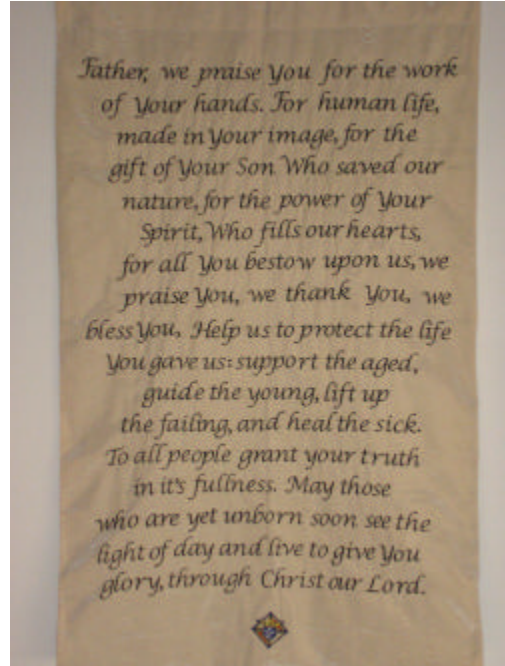 Father, we praise You for the work
of Your hands. For human life,
made in Your image, for the
gift of Your Son Who saved our
nature, for the power of Your
Spirit, Who fills our hearts,
for all You bestow upon us, we
praise You, we thank You, we
bless You, Help us to protect the life
You gave us: support the aged,
guide the young, lift up
the failing, and heal the sick.
To all people grant your truth
in it's fullness. May those
who are yet unborn soon see the
light of day and live to give You
glory, through Christ our Lord.